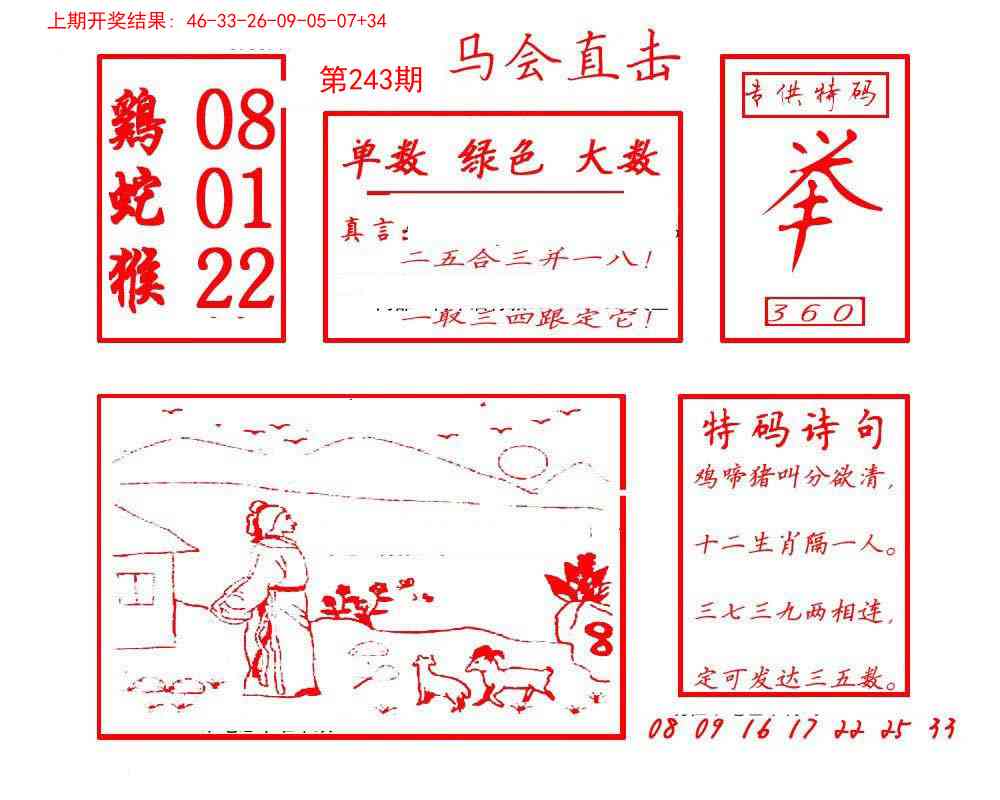 上期开奖结果: 46-33-26-09-05-07+34
第243期
马会直击
鷄 08
蛇 01
猴 22
单数 绿色 大数
真言:
二五合三并一八!
一取三四跟定它!
专供特码
举
360
8
特码诗句
鸡啼猪叫分欲清,
十二生肖隔一人。
三七三九两相连,
定可发达三五数。
08 09 16 17 22 25 33